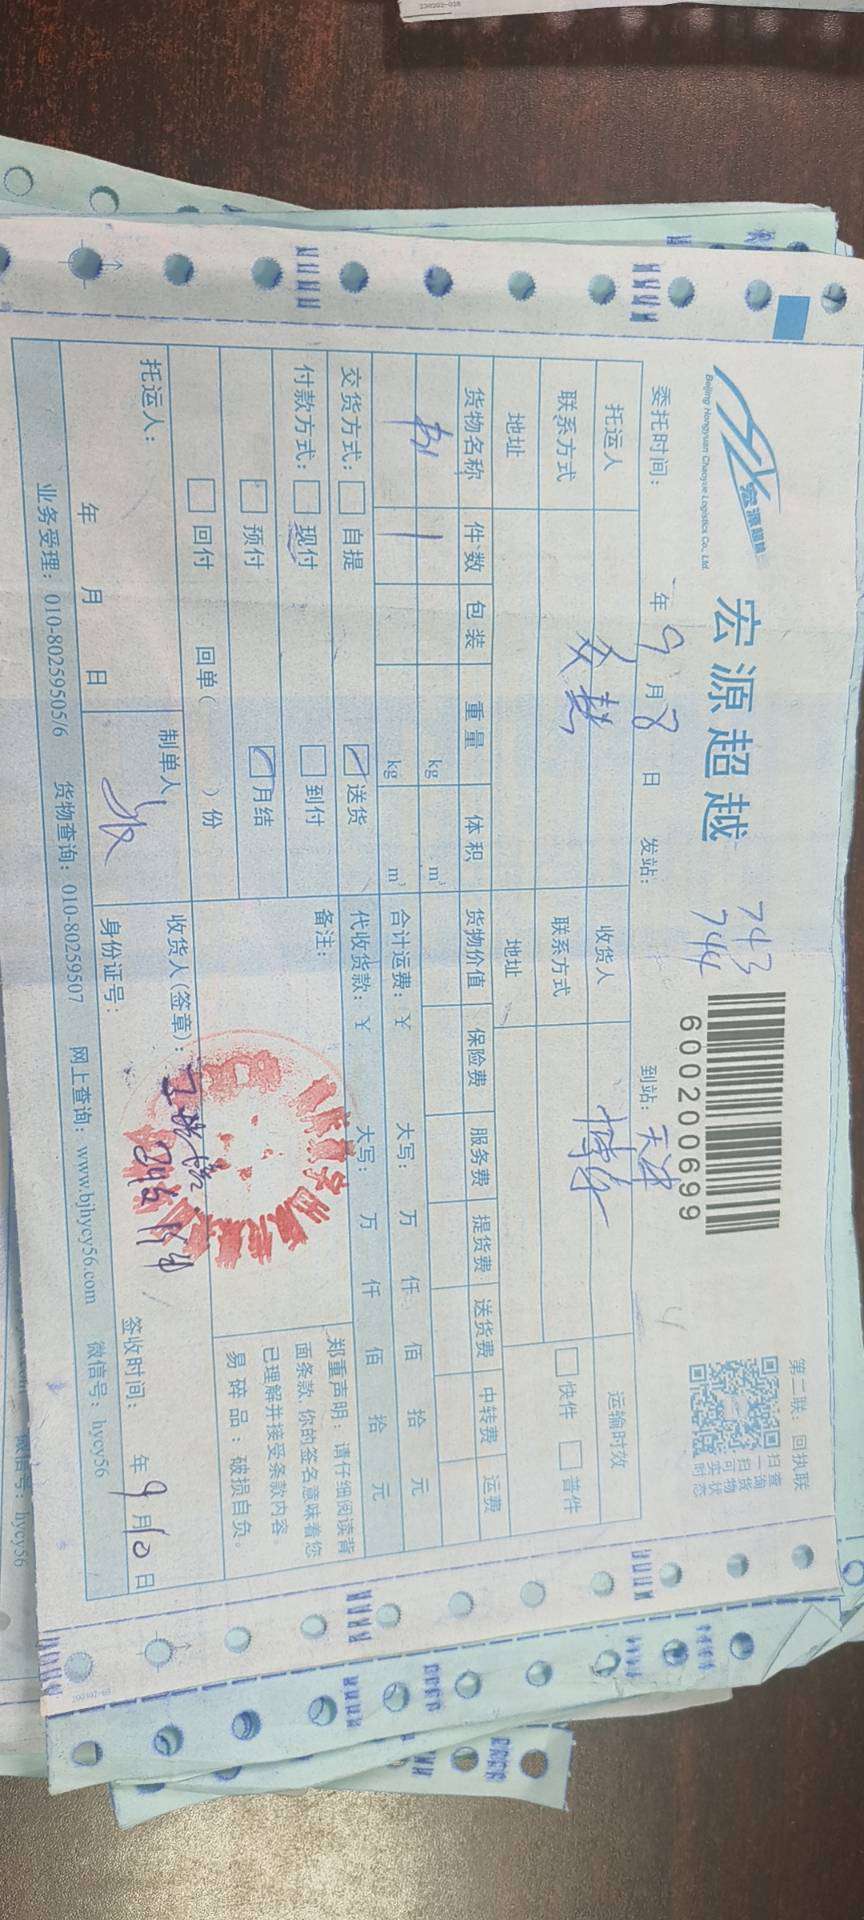 宏源超越
Beijing Hongyuan Chaoyue Logistics Co., Ltd.
宏源超越
743
744
600200699
第二联：回执联
扫一扫可实时
查询货物状态
委托时间： 年 9 月 8 日 发站： 到站：天津
托运人 收货人 运输时效
联系方式 联系方式 快件 普件
地址 地址
货物名称 件数 包装 重量 体积 货物价值 保险费 服务费 提货费 送货费 中转费 运费
1 kg m³
kg m³ 合计运费：￥ 大写： 万 仟 佰 拾 元
交货方式： 自提 送货 代收货款：￥ 大写： 万 仟 佰 拾 元
付款方式： 现付 到付 备注：
预付 月结
回付 回单（ ）份
郑重声明：请仔细阅读背
面条款，你的签名意味着您
已理解并接受条款内容。
易碎品：破损自负。
托运人： 制单人 收货人(签章)：
年 月 日 身份证号： 签收时间： 年 9 月 10 日
业务受理：010-80259505/6 货物查询：010-80259507 网上查询：www.bjhycy56.com 微信号：hycy56
微信号：hycy56